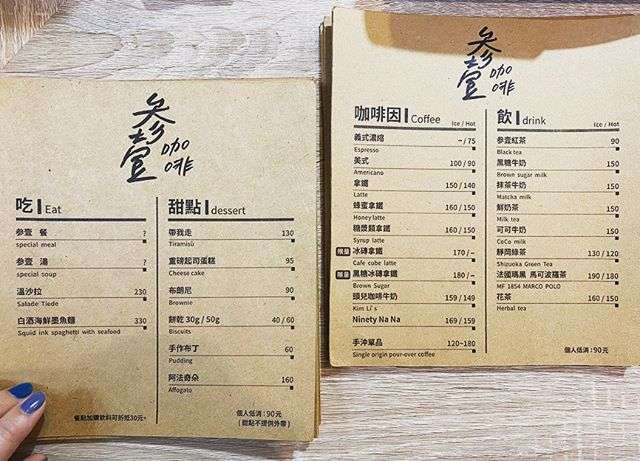 参壹
咖啡
吃 Eat
参壹 餐 ?
special meal
参壹 湯 ?
special soup
溫沙拉 230
Salade Tiede
白酒海鮮墨魚麵 330
Squid ink spaghetti with seafood
餐點加購飲料可折抵30元。
甜點 dessert
帶我走 130
Tiramisù
重磅起司蛋糕 95
Cheese cake
布朗尼 90
Brownie
餅乾 30g / 50g 40 / 60
Biscuits
手作布丁 60
Pudding
阿法奇朵 160
Affogato
個人低消:90元
(甜點不提供外帶)
参壹
咖啡
咖啡因 Coffee Ice / Hot
義式濃縮 – / 75
Espresso
美式 100 / 90
Americano
拿鐵 150 / 140
Latte
蜂蜜拿鐵 160 / 150
Honey latte
糖漿類拿鐵 160 / 150
Syrup latte
限量 冰磚拿鐵 170 / –
Cafe cube latte
限量 黑糖冰磚拿鐵 180 / –
Brown Sugar
頭兒咖啡牛奶 159 / 149
Kim Li's
Ninety Na Na 169 / 159
手沖單品 120~180
Single origin pour-over coffee
飲 drink Ice / Hot
参壹紅茶 90
Black tea
黑糖牛奶 150
Brown sugar milk
抹茶牛奶 150
Matcha milk
鮮奶茶 150
Milk tea
可可牛奶 150
CoCo milk
靜岡綠茶 130 / 120
Shizuoka Green Tea
法國瑪黑 馬可波羅茶 190 / 180
MF 1854 MARCO POLO
花茶 160 / 150
Herbal tea
個人低消:90元